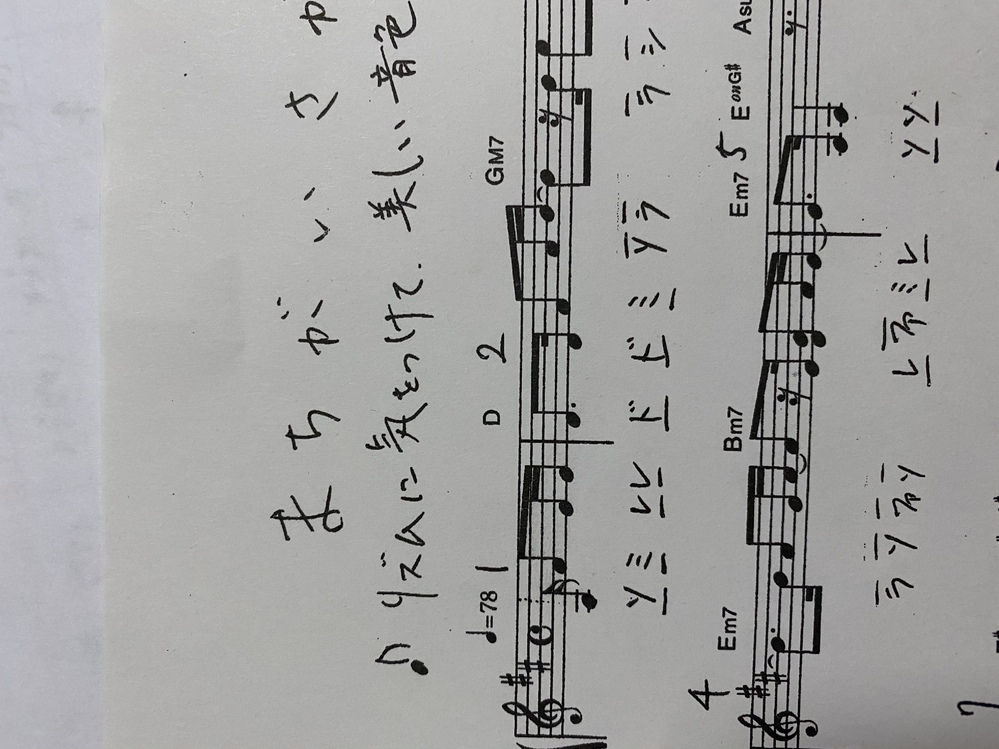 まちがいさ
♪ リズムに気をつけて. 美しい音色
♩=78 1 D 2 GM7
ソミ レレ ド ド ミ ソラ ラシ
4 Em7 Bm7 Em7 5 E onG# Asu
ラソファソ レファミレ ソソ
7